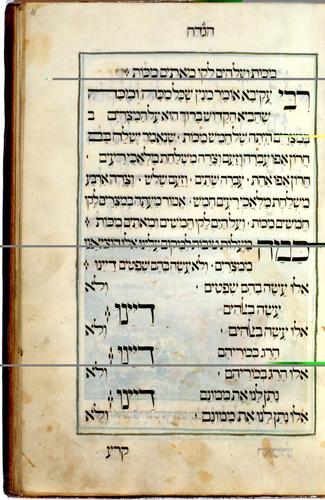 הגדה
מכות ועל הים לקו מאתים מכות :
רבי עקיבא אומר מנין שכל מכה ומכה
שהביא הקדוש ברוך הוא על המצרים ב
במצרים היתה של חמש מכות · שנאמר ישלח בם
חרון אפו עברה וזעם וצרה משלחת מלאכי רעים ·
חרון אפו אחת · עברה שתים · וזעם שלש · וצרה ארבע
משלחת מלאכי רעים חמש · אמור מעתה במצרים לקו
חמשים מכות · ועל הים לקו חמשים ומאתים מכות :
כמה מעלות טובות למקום עלינו אלו הוציאנו
ממצרים · ולא עשה בהם שפטים דיינו ·
אלו עשה בהם שפטים · ולא
עשה באלהים דיינו :
אלו עשה באלהים · ולא
הרג בכוריהם דיינו :
אלו הרג בכוריהם · ולא
נתן לנו את ממונם דיינו :
אלו נתן לנו את ממונם · ולא
קרע